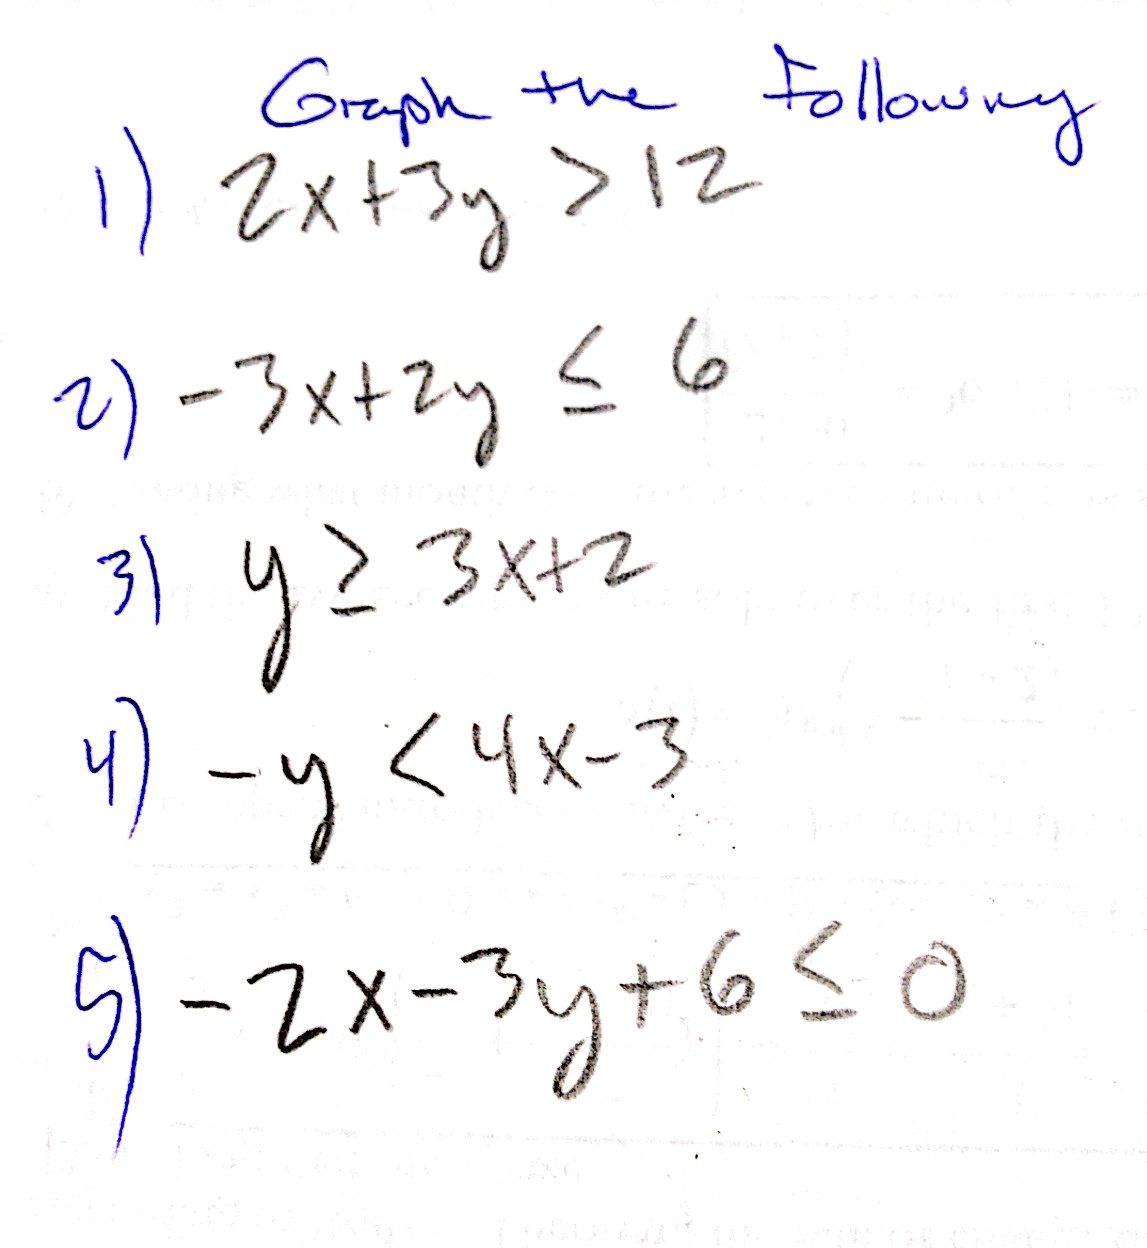 Graph the Following
1) 2x+3y > 12
2) -3x+2y ≤ 6
3) y ≥ 3x+2
4) -y < 4x-3
5) -2x-3y+6 ≤ 0